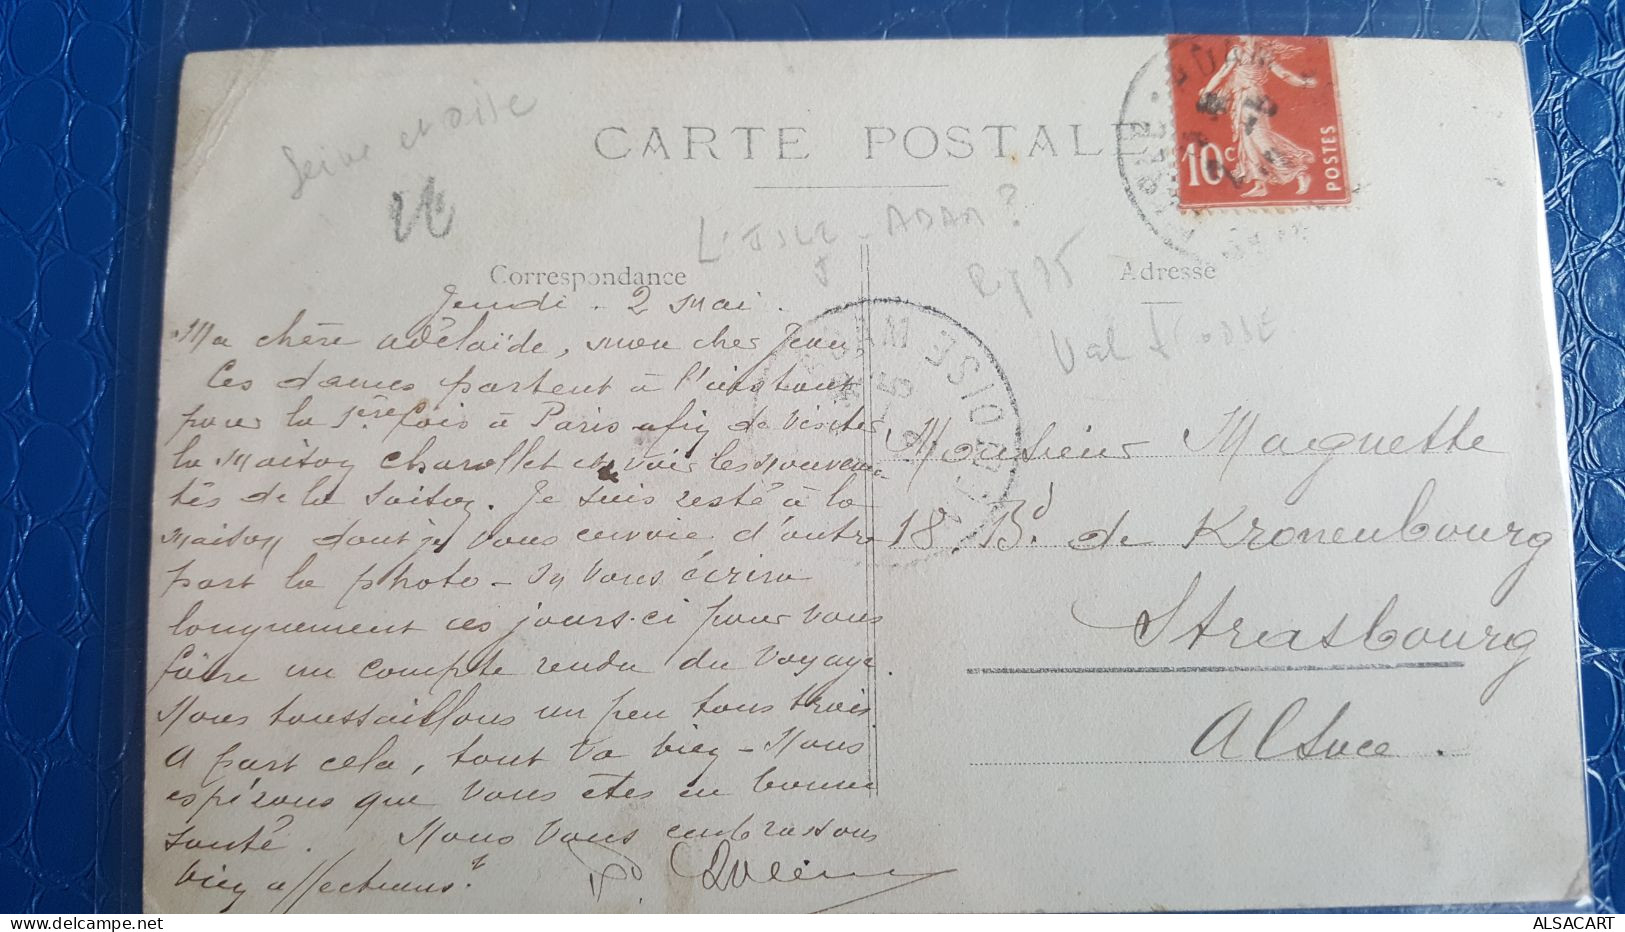 Seine et Oise
CARTE POSTALE
10c
POSTES
L'ISLE-ADAM?
Correspondance
Adresse
Val d'OISE
Jeudi - 2 Mai.
Ma chère Adélaïde, mon cher Jean,
Ces dames partent à l'instant
pour la 1ère fois à Paris afin de visiter
la Maison Charollet et voir les nouveau-
tés de la saison. Je suis resté à la
maison dont je vous envoie d'autre
part la photo - On vous écrira
longuement ces jours-ci pour vous
faire un compte rendu du voyage.
Nous toussaillons un peu tous trois.
A part cela, tout va bien - Nous
espérons que vous êtes en bonne
santé. Nous vous embrassons
bien affectueust
Monsieur Maiguette
18. Bd. de Kronenbourg
Strasbourg
Alsace.
ALSACART